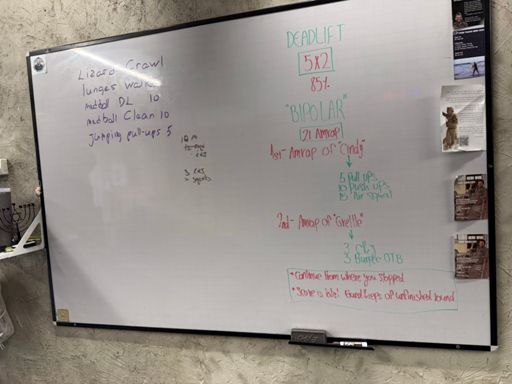 Lizard Crawl
lunges walk
medball DL 10
medball Clean 10
jumping pull-ups 5
10 M
DEADLIFT
5x2
85%
"BIPOLAR"
21 Amrap
1st- Amrap of "Cindy"
5 Pull ups
10 Push ups
15 Air squat
2nd- Amrap of "Grettle"
3 C&J
3 Burpee OTB
*Continue from where you stopped
*Score is total round & reps of unfinished round